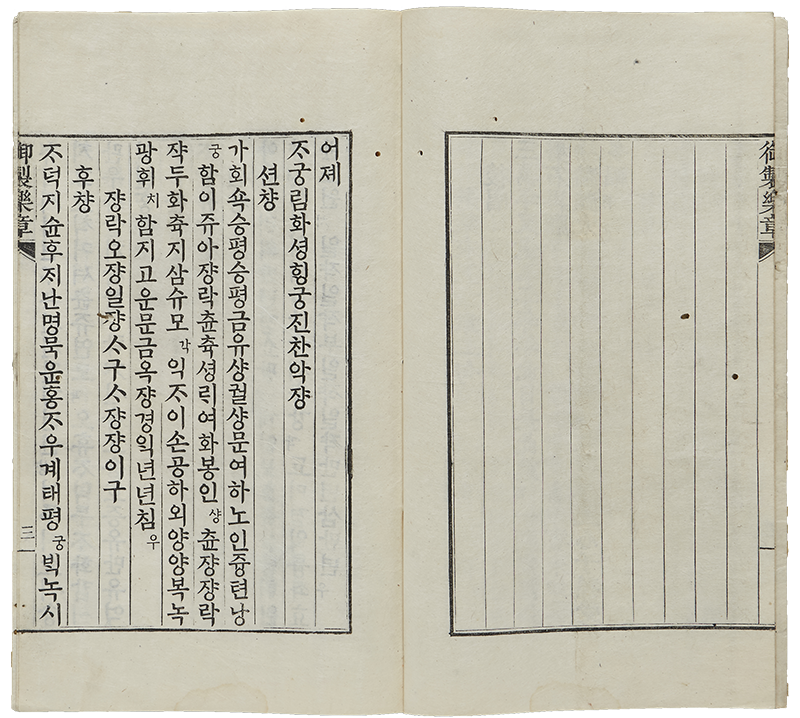 御製樂章
어졔
ᄌᆞ궁림화셩ᄒᆡᆼ궁진찬악쟝
션챵
가회쇽승평승평금유샹궐샹문여하노인즁텬낭
궁 함이쥬아쟝락츈츅셩ᄅᆡ여화봉인 샹 츈쟝쟝락
쟉두화츅지삼슈모 각 익ᄌᆞ이손공하외양양복녹
광휘 치 함지고운문금옥쟝경익년년침 우
쟝락오쟝일쟝ᄉᆞ구ᄉᆞ쟝쟝이구
후챵
ᄌᆞ덕지슌후지난명묵운홍ᄌᆞ우계태평 궁 ᄇᆡᆨ녹시
御製樂章
三